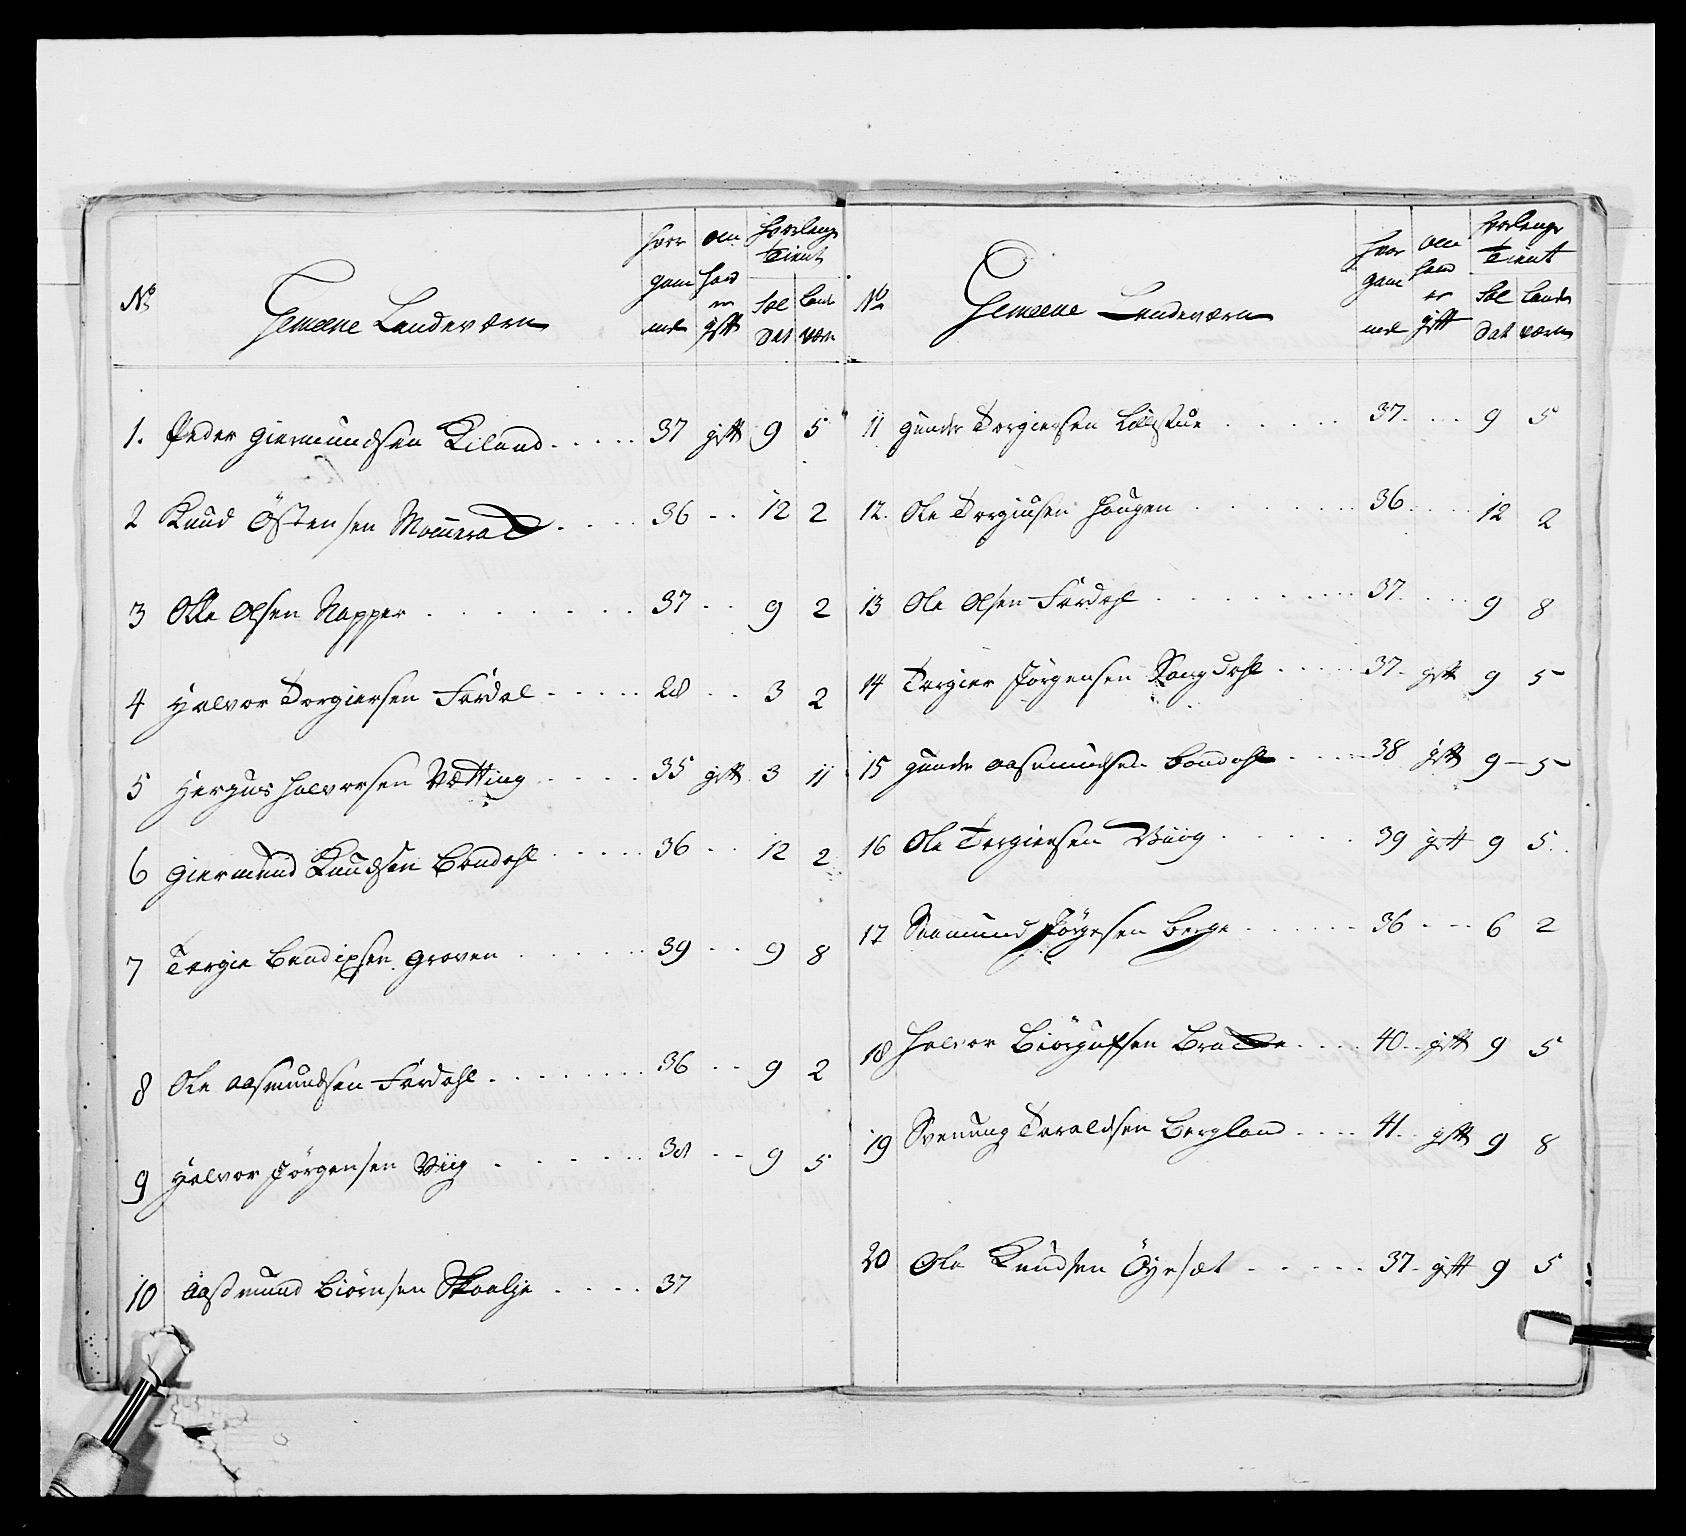 No
Gemeene Landeværn
hvor gam mel
om hand er gift
hvorlenge tient
Sol dat
Lande værn
1. Peder Giermundsen Kiland 37 gift 9 5
2 Knud Östensen Momerak 36 12 2
3 Olle Olsen Napper 37 9 2
4 Halvor Torgiersen Fördal 28 3 2
5 Hergus Halvorsen Vætting 35 gift 3 11
6 Giermund Knudsen Bondahl 36 12 2
7 Tergie Bendixsen Groven 39 9 8
8 Ole Aasmundsen Fördahl 36 9 2
9 Halvor Jörgensen Viig 38 9 5
10 Aasmund Biörnsen Skoalje 37
No
Gemeene Landeværn
hvor gam mel
om hand er gift
hvorlenge tient
Sol dat
Lande værn
11 Gunder Torgiersen 37 9 5
12. Ole Torgiusen Haugen 36 12 2
13 Ole Olsen Fördahl 37 9 8
14 Torgier Jörgensen Songdahl 37 gift 9 5
15 Gunder Aasmundsen Bondahl 38 gift 9 5
16 Ole Torgiersen Viiig 39 gift 9 5
17 Saamund Jörgesen Berge 36 6 2
18 Halvor Biörgufsen 40 gift 9 5
19 Svenung Taraldsen Bergland 41 gift 9 8
20 Ole Knudsen Öyesæt 37 gift 9 5